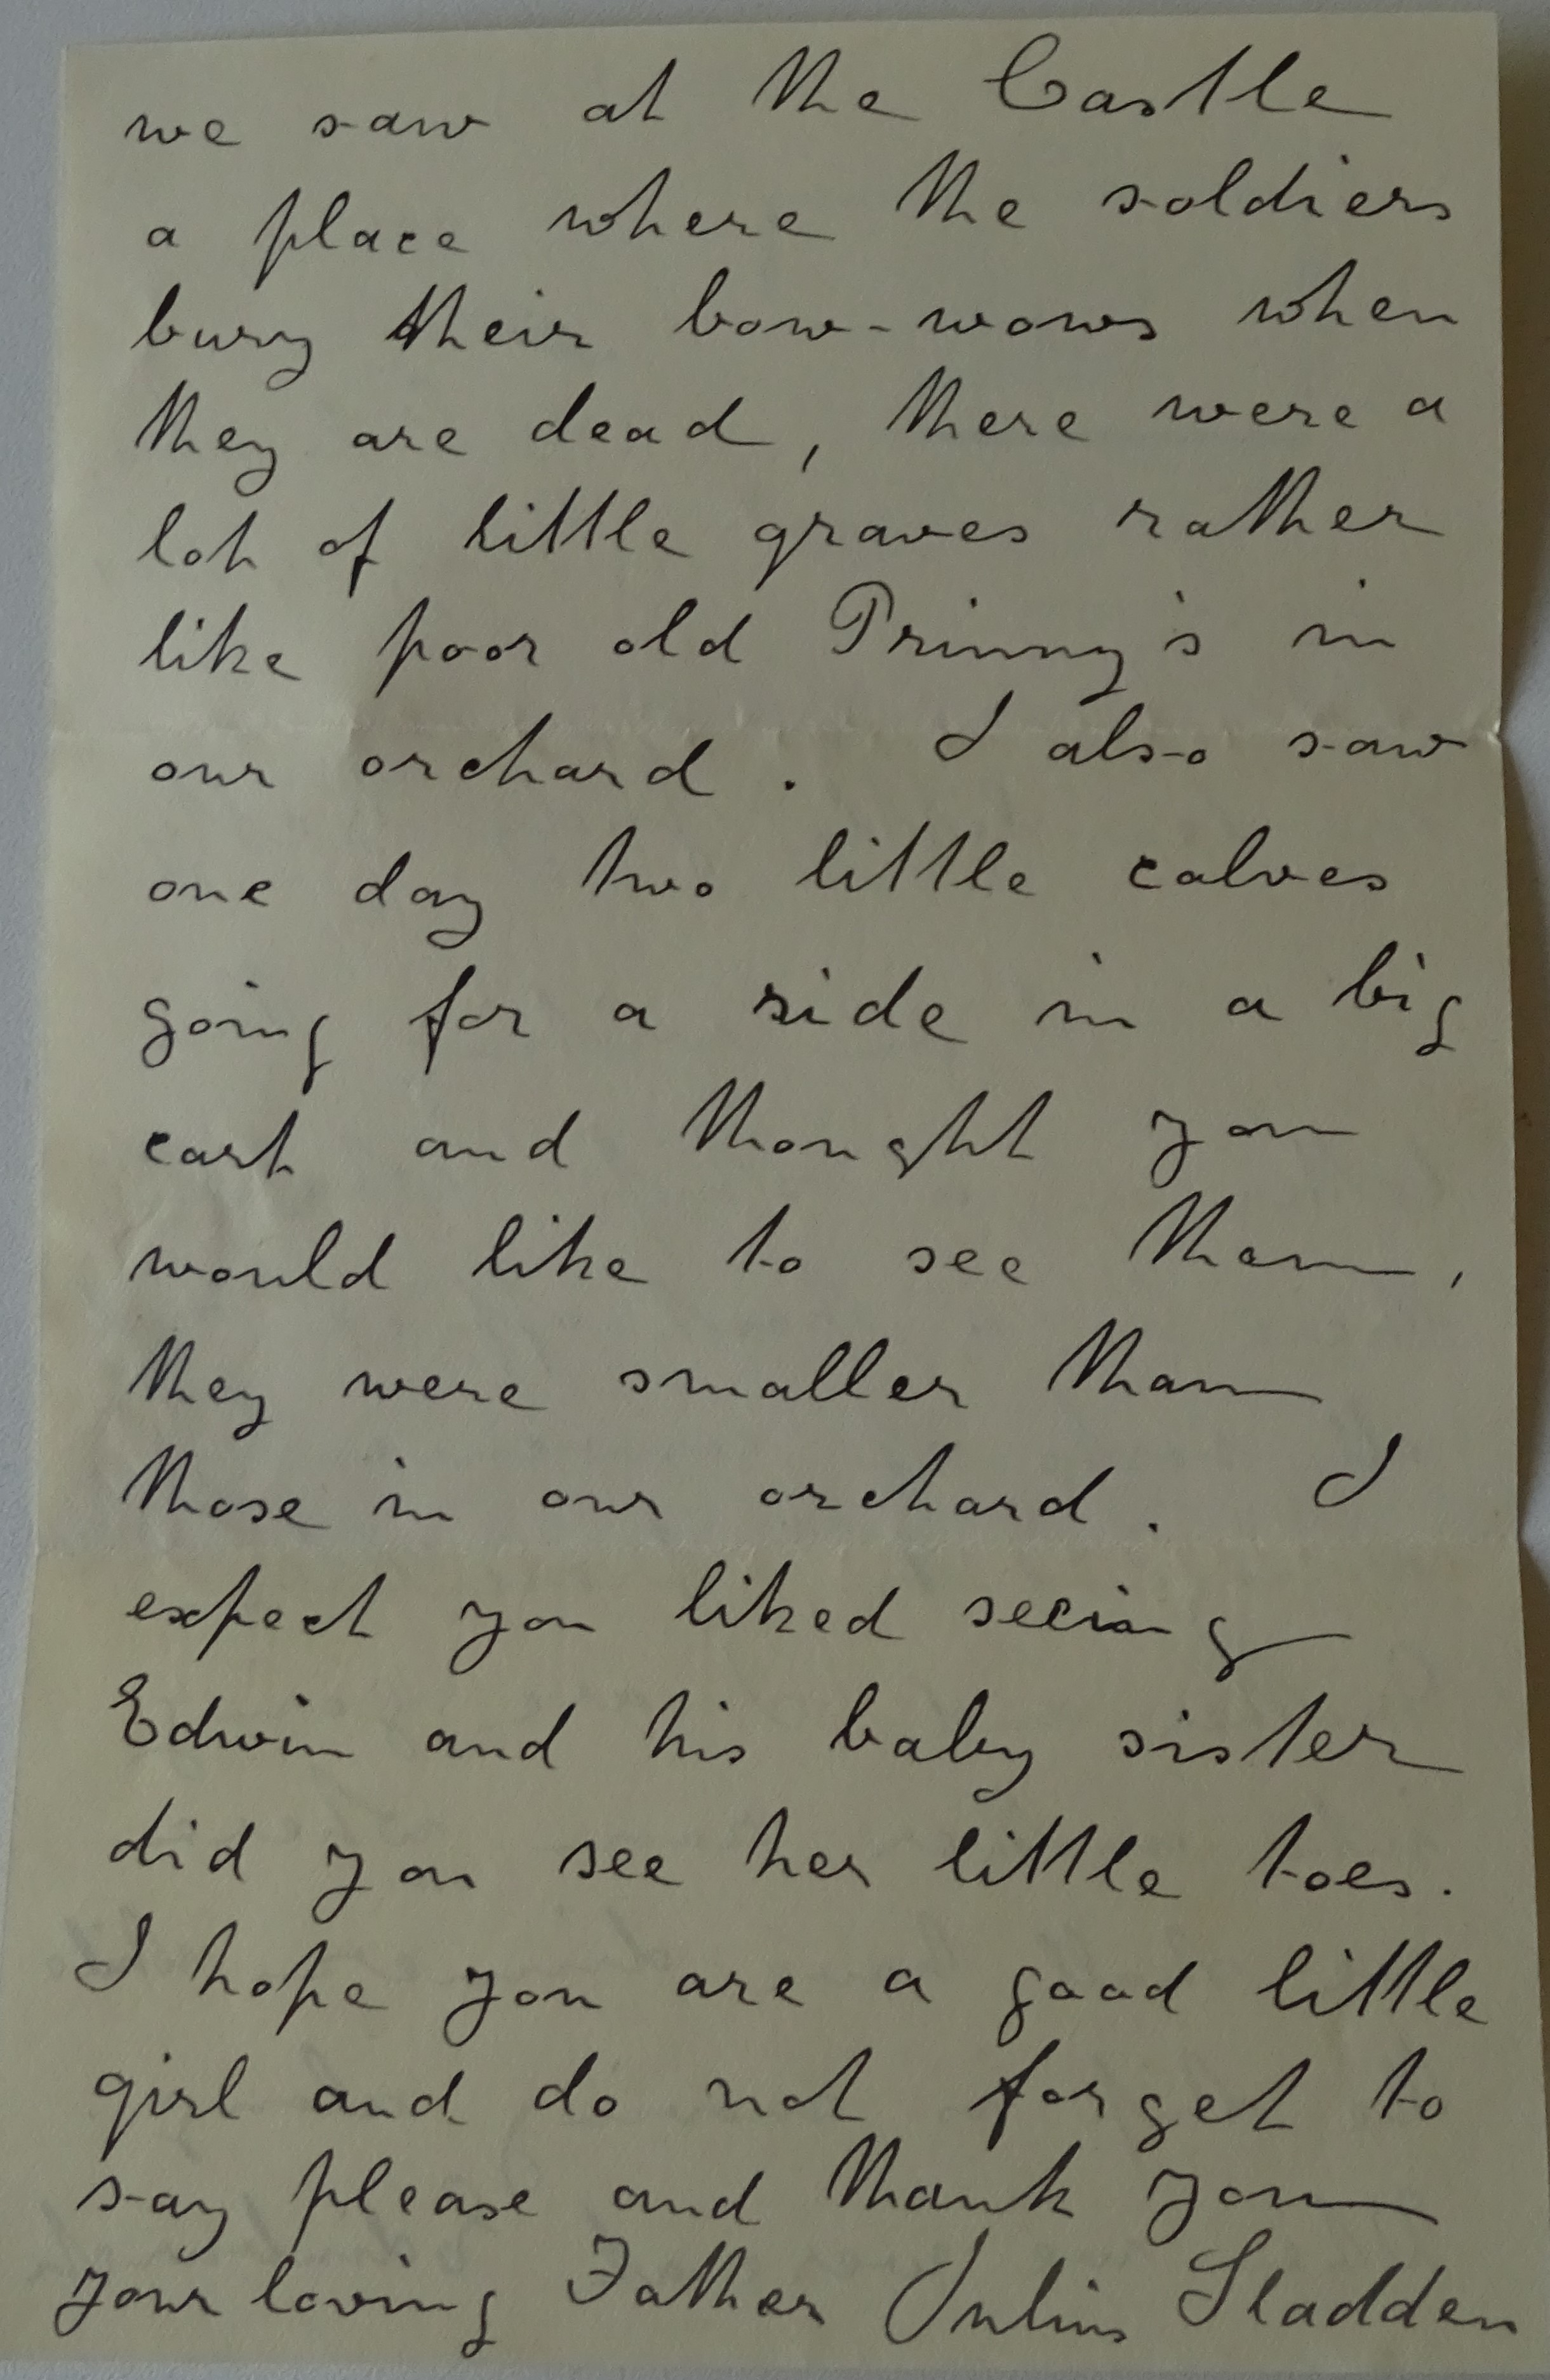 we saw at the Castle
a place where the soldiers
bury their bow-wows when
they are dead, there were a
lot of little graves rather
like poor old Prinny's in
our orchard. I also saw
one day two little calves
going for a ride in a big
cart and thought you
would like to see them,
they were smaller than
those in our orchard. I
expect you liked seeing
Edwin and his baby sister
did you see her little toes.
I hope you are a good little
girl and do not forget to
say please and thank you
your loving Father Julius Sladden